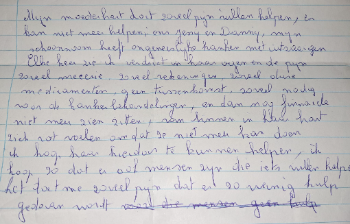 Mijn moederhart doet zoveel pijn willen helpen, en
kan niet meer helpen, ons Jenny en Danny, mijn
schoonzoon heeft ongeneeslijke kanker met uitzaaiingen
Elke keer zie ik verdriet in haar ogen en de pijn
zoveel miserie, zoveel rekeningen, zoveel dure
medicamenten, geen tussenkomst, zoveel nodig
voor de kankerbehandelingen, en dan nog financieel
niet meer zien zitten, van binnen in haar hart
zich rot voelen omdat ze niet meer kan doen
ik hoop haar hierdoor te kunnen helpen, ik
hoop zo dat er ook mensen zijn die iets willen helpen
het doet me zoveel pijn dat er zo weinig hulp
gedaan wordt